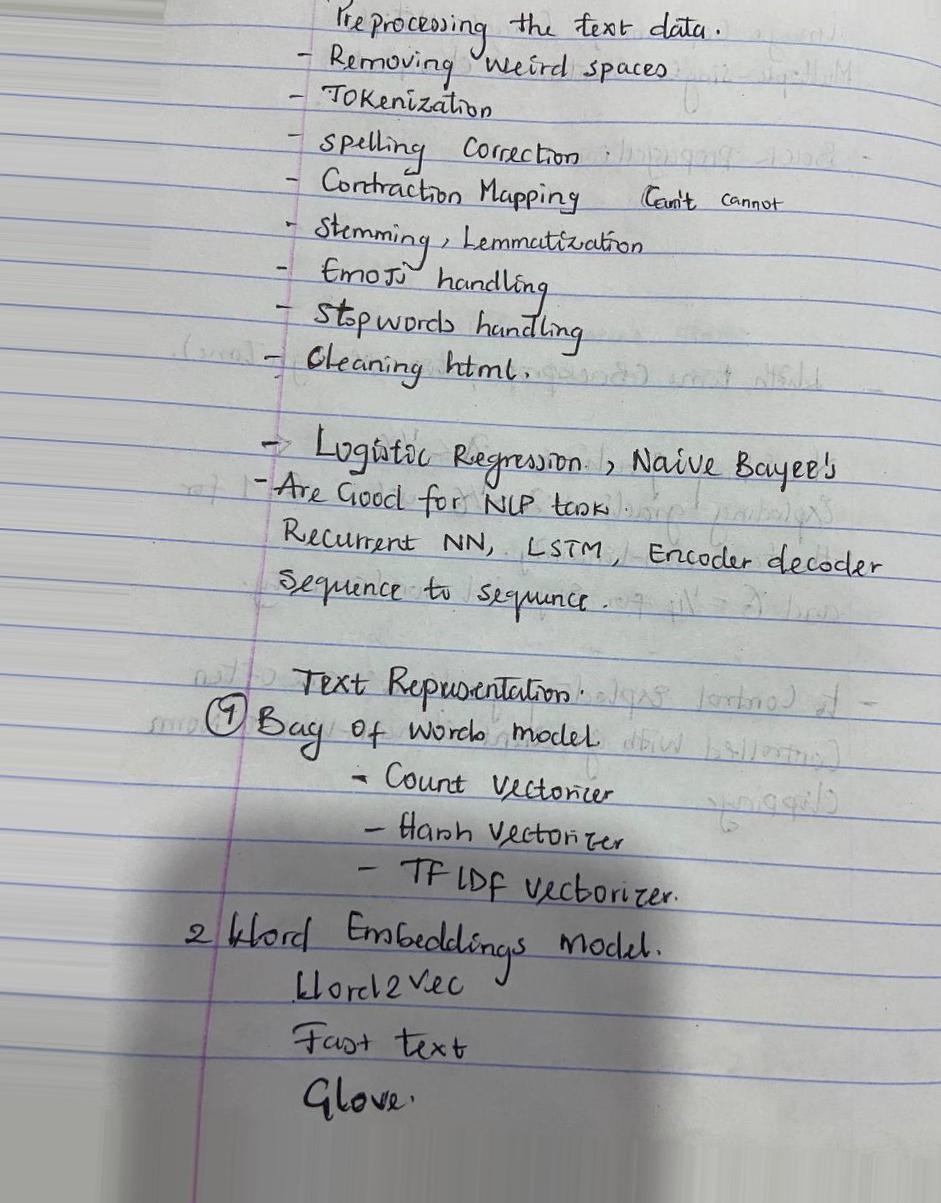 Preprocessing the text data.
- Removing weird spaces
- Tokenization
- spelling correction.
- Contraction Mapping Can't cannot
- Stemming, Lemmatization
- Emoji handling
- Stopwords handling
- Cleaning html.
- Logistic Regression., Naive Bayee's
- Are Good for NLP task.
Recurrent NN, LSTM, Encoder decoder
Sequence to sequence.
Text Representation.
1 Bag of words model
- Count Vectorizer
- Hash Vectorizer
- TFIDF vectorizer.
2 Word Embeddings model.
Word2Vec
Fast text
Glove.